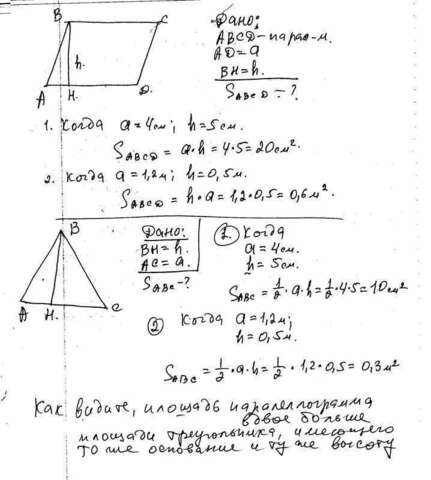 B C
h.
A H. D.
Дано:
ABCD-парал-м.
AD=a
BH=h.
S_ABCD=?
1. Когда a=4см; h=5см.
S_ABCD = a·h = 4·5=20см².
2. Когда a=1,2м; h=0,5м.
S_ABCD = h·a = 1,2·0,5=0,6м².
B
A H. C
Дано:
BH=h.
AC=a.
S_ABC-?
1. Когда
a=4см.
h=5см.
S_ABC = 1/2·a·h = 1/2·4·5=10см²
2 Когда a=1,2м;
h=0,5м.
S_ABC = 1/2·a·h = 1/2·1,2·0,5=0,3м²
Как видите, площадь параллелограмма
вдвое больше
площади треугольника, имеющего
то же основание и ту же высоту